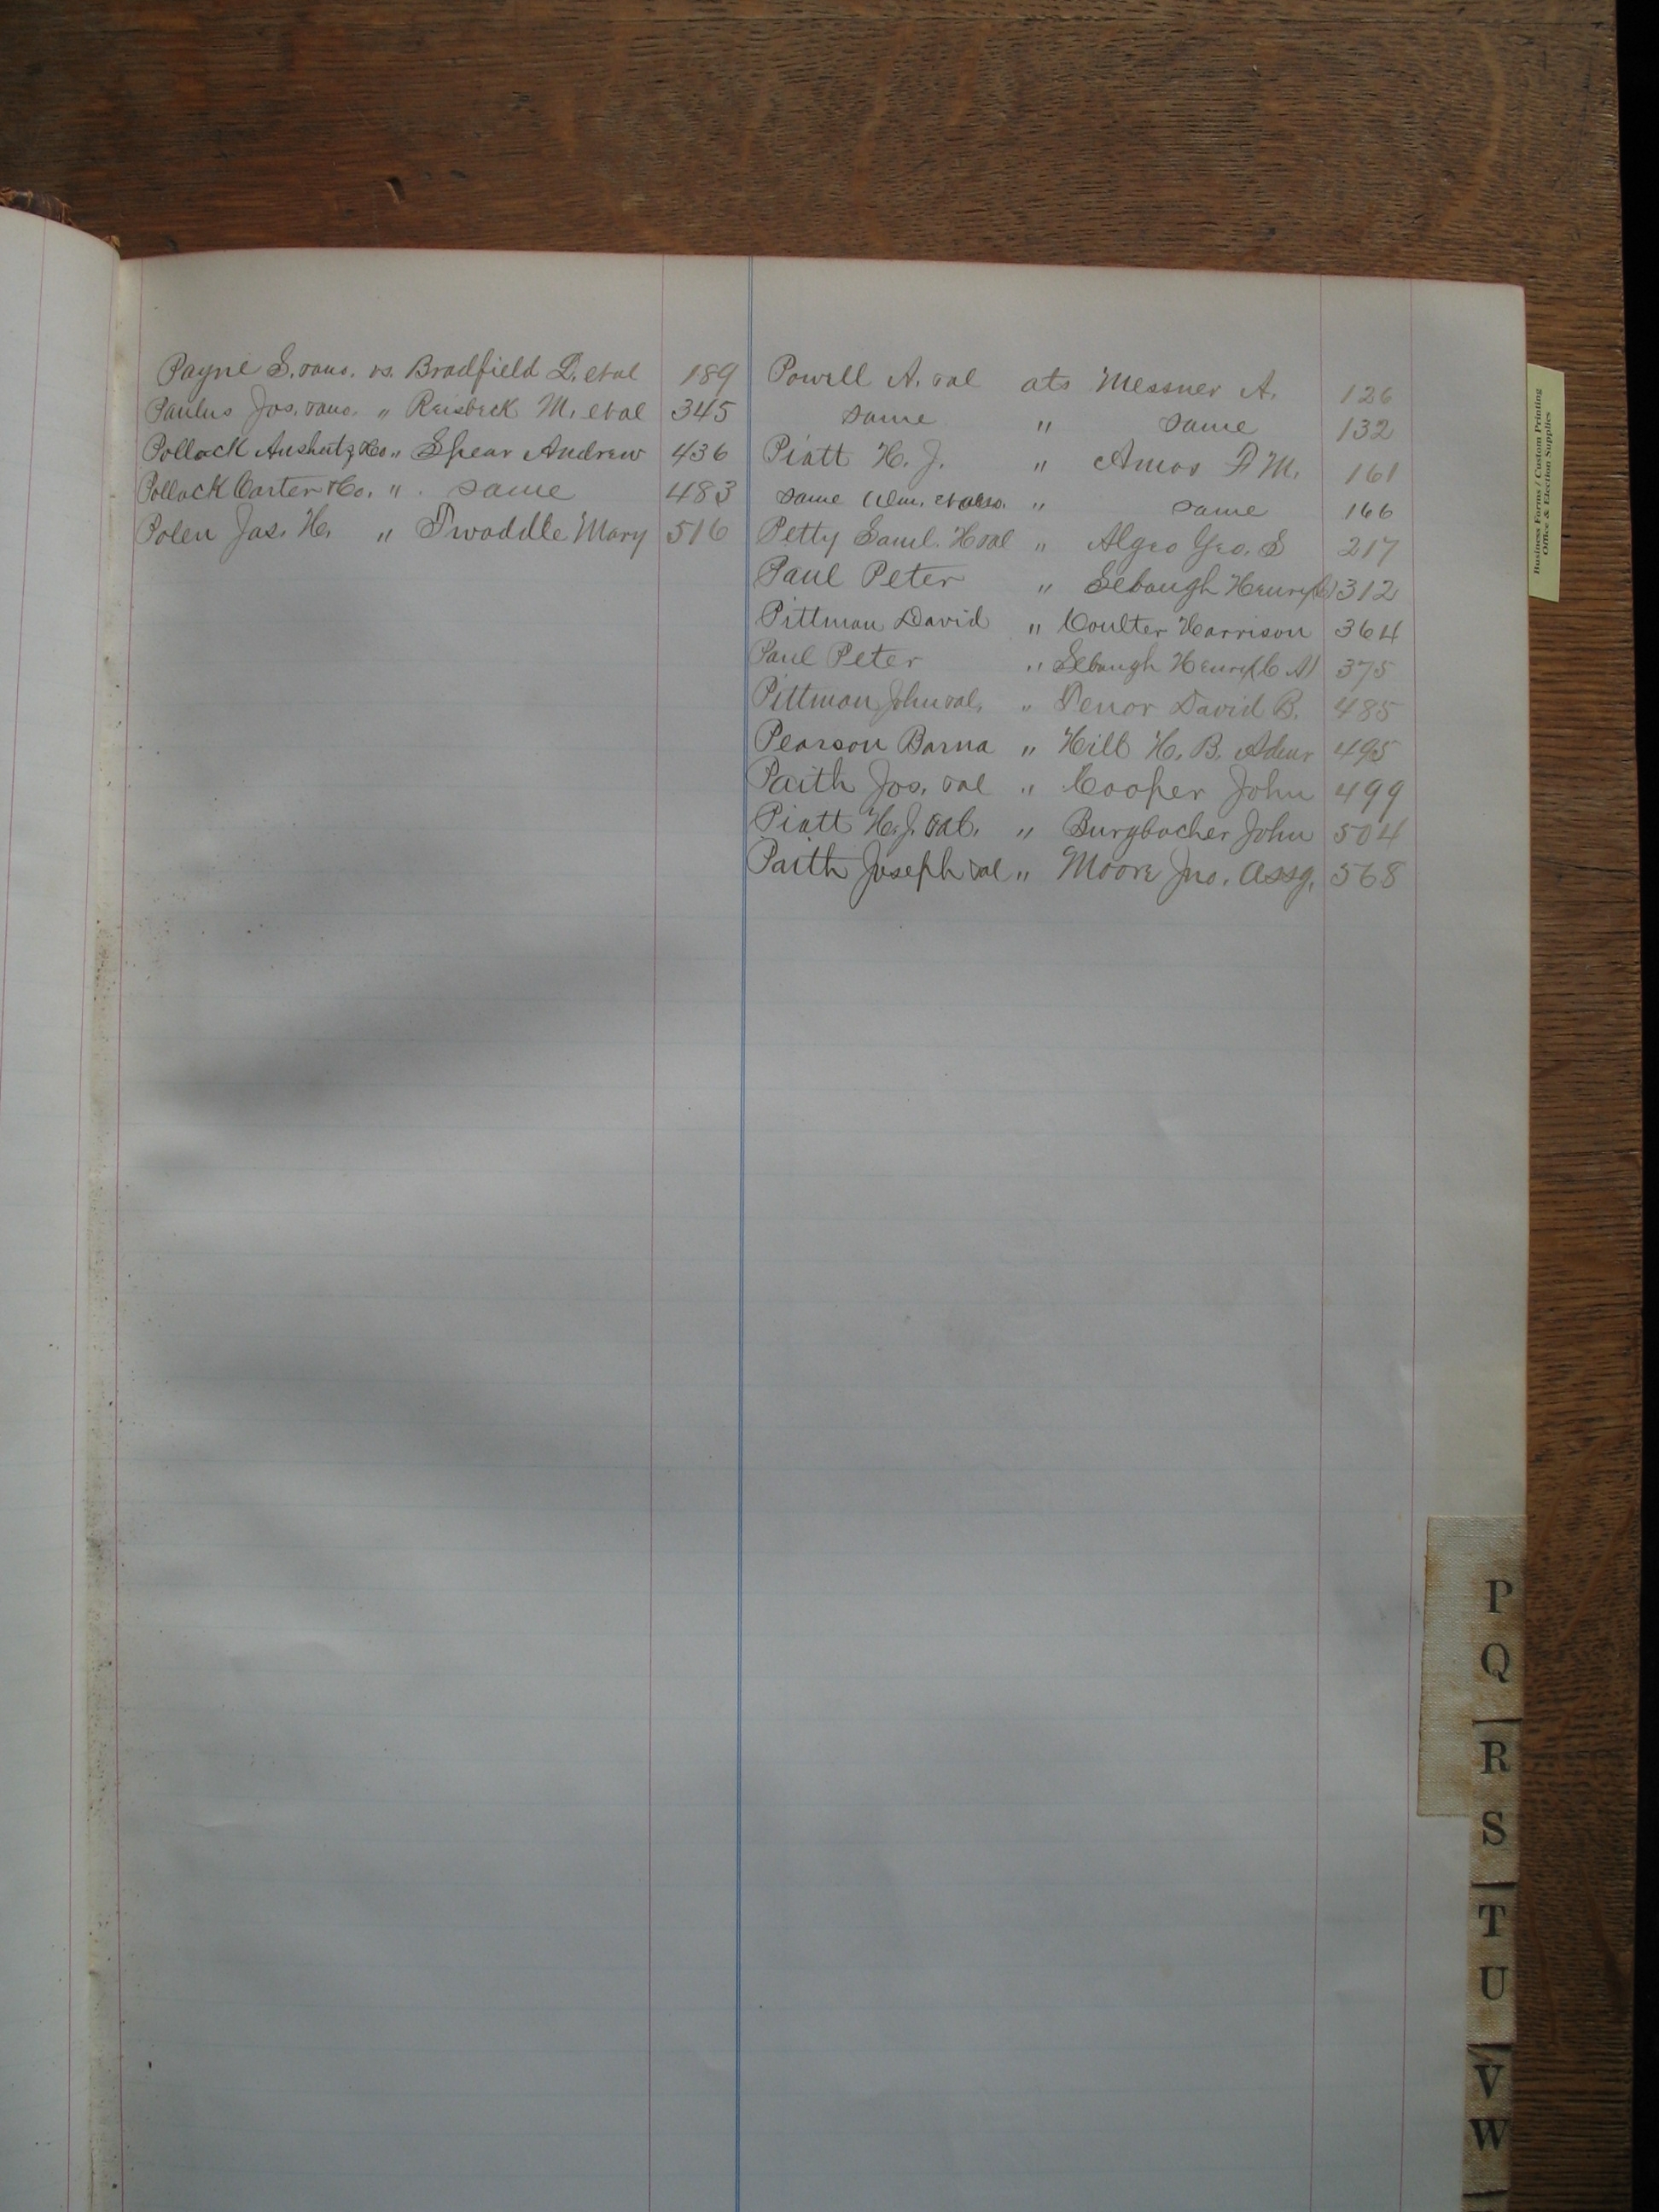 Payne S. vs. Bradfield D. et al 189
Paulus Jos. " Reisbeck M. et al 345
Pollock Anshutz & Co " Spear Andrew 436
Pollock Carter & Co. " same 483
Polen Jas. H. " Twaddle Mary 516
Powell A. et al ats Messner A. 126
same " same 132
Piatt H. J. " Amos F M. 161
same Wm. " same 166
Petty Saml. H et al " Algeo Geo. S 217
Paul Peter " Sebaugh Henry 312
Pittman David " Coulter Harrison 364
Paul Peter " Sebaugh Henry (C A) 375
Pittman John et al, " Tenor David B. 485
Pearson Barna " Hill H. B. Admr 495
Paith Jos. et al " Cooper John 499
Piatt H. J. et al. " Burgbacher John 504
Paith Joseph et al " Moore Jno. Assg. 568
Business Forms / Custom Printing
Office & Election Supplies
P
Q
R
S
T
U
V
W